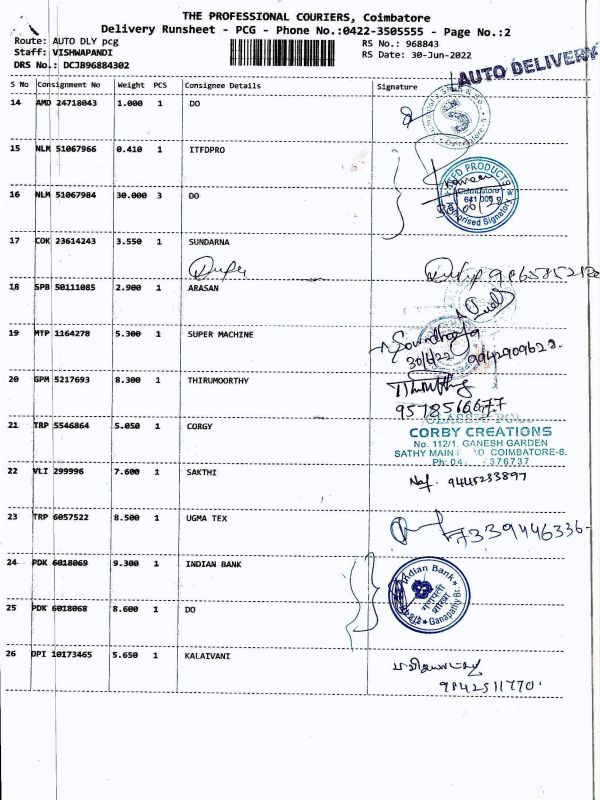 THE PROFESSIONAL COURIERS, Coimbatore
Delivery Runsheet - PCG - Phone No.:0422-3505555 - Page No.:2
Route: AUTO DLY pcg RS No.: 968843
Staff: VISHWAPANDI RS Date: 30-Jun-2022
DRS No.: DCJB96884302
AUTO DELIVERY
S No Consignment No Weight PCS Consignee Details Signature
14 AMD 24718043 1.000 1 DO
S
15 NLM 51067966 0.410 1 ITFDPRO
16 NLM 51067984 30.000 3 DO
PRODUCTS
Coimbatore
641 006
Authorised Signatory
17 COK 23614243 3.550 1 SUNDARNA
18 SPB 50111085 2.900 1 ARASAN
19 MTP 1164278 5.300 1 SUPER MACHINE
30/6/22 9942909628.
20 GPM 5217693 8.300 1 THIRUMOORTHY
9578566677
21 TRP 5546864 5.050 1 CORGY
CORBY CREATIONS
No. 112/1, GANESH GARDEN
SATHY MAIN COIMBATORE-6.
Ph: 04 376737
22 VLI 299996 7.600 1 SAKTHI
9445233897
23 TRP 6057522 8.500 1 UGMA TEX
7339446336-
24 PDK 6018069 9.300 1 INDIAN BANK
Indian Bank
Ganapathy Br.
25 PDK 6018068 8.600 1 DO
26 DPI 10173465 5.650 1 KALAIVANI
9842511770.